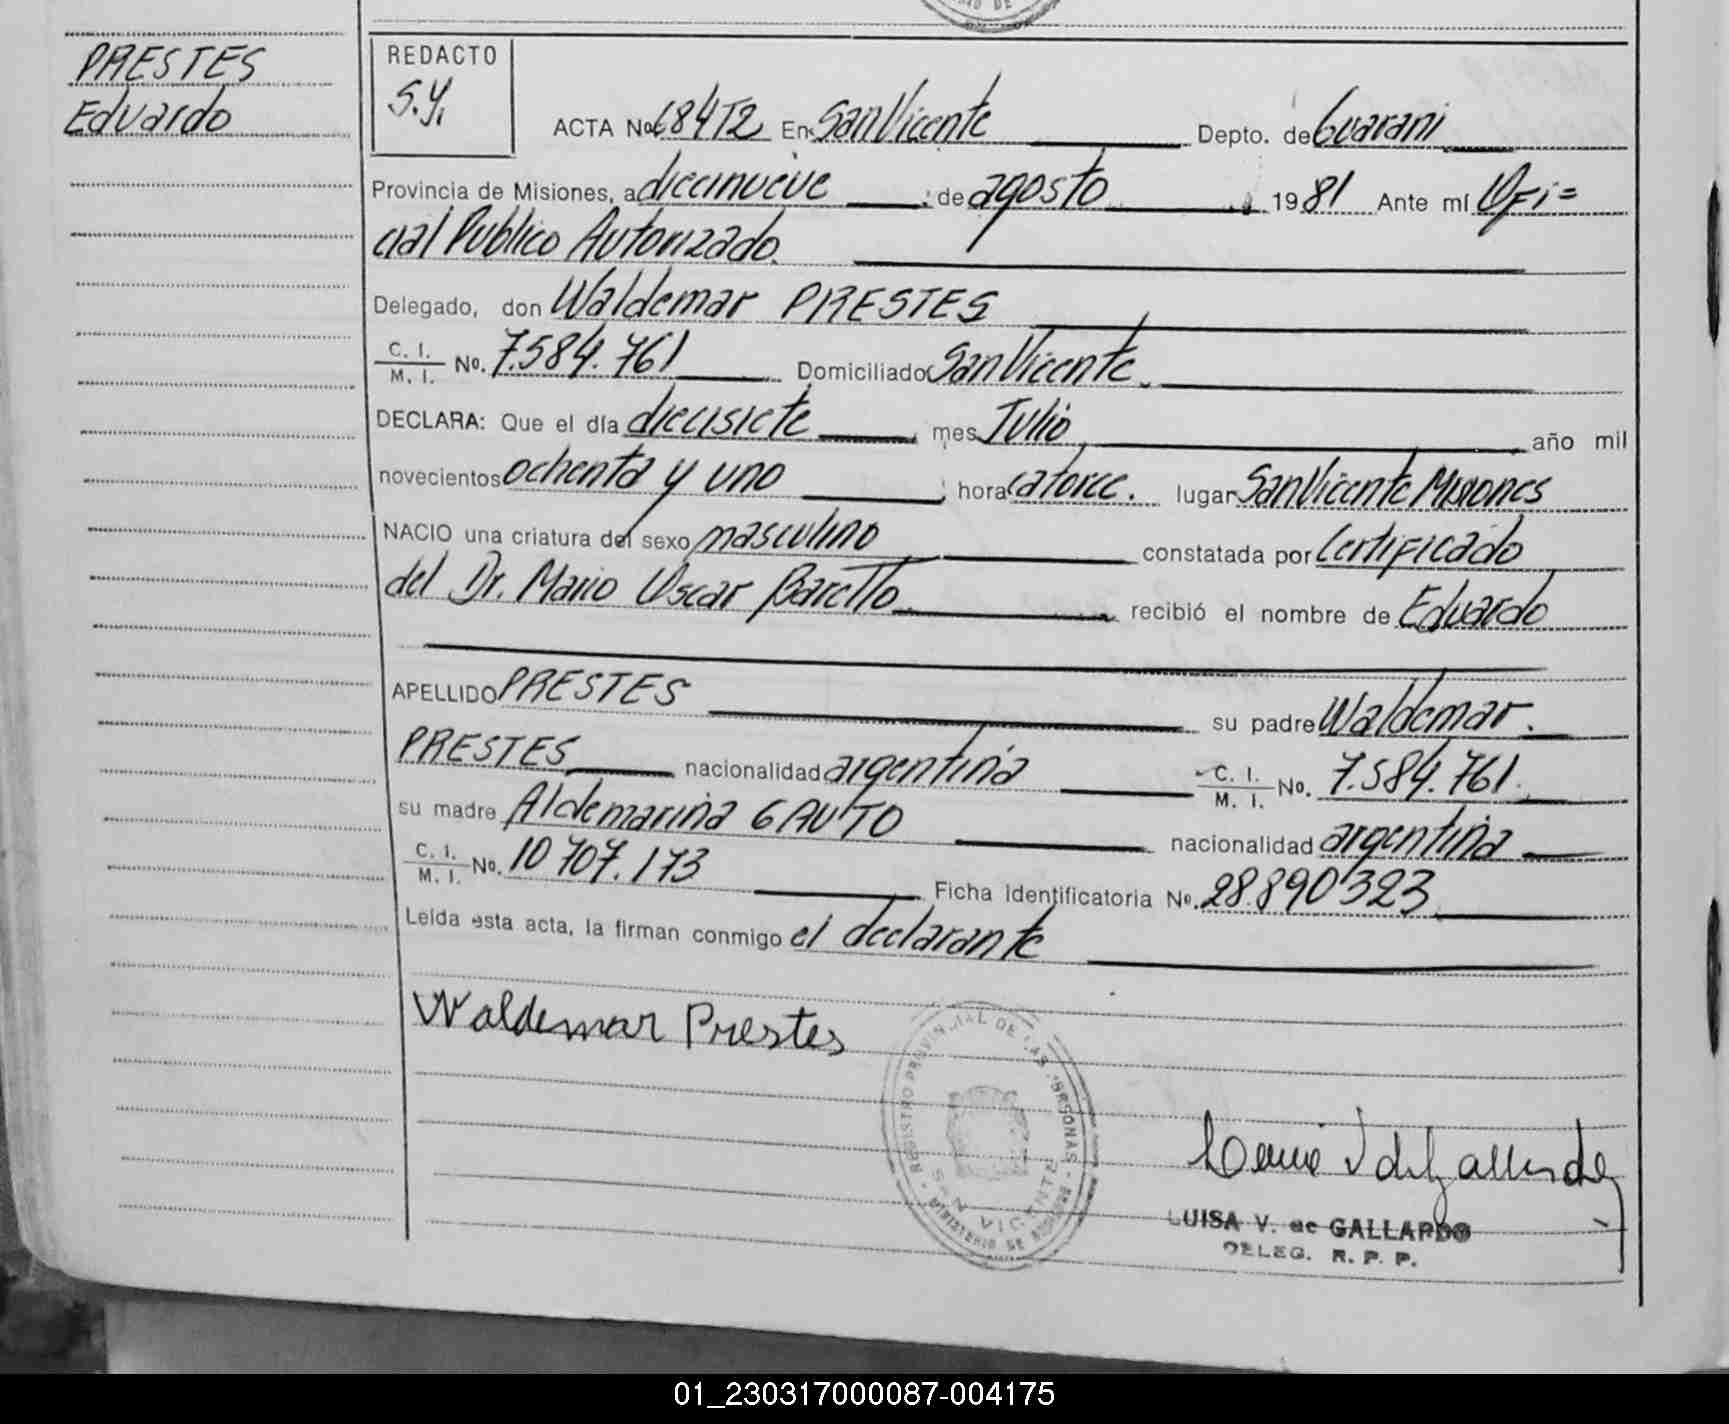 PRESTES
Eduardo
REDACTO
S.Y.
ACTA No. 684T2 En San Vicente Depto. de Guarani
Provincia de Misiones, a diecinueve de agosto 1981 Ante mí Ofi=
cial Publico Autorizado.
Delegado, don Waldemar PRESTES
C. I. / M. I. No. 7.584.761 Domiciliado San Vicente
DECLARA: Que el día diecisiete mes Julio año mil
novecientos ochenta y uno hora catorce. lugar San Vicente Misiones
NACIO una criatura del sexo masculino constatada por Certificado
del Dr. Mario Oscar recibió el nombre de Eduardo
APELLIDO PRESTES su padre Waldemar.
PRESTES nacionalidad argentina C. I. / M. I. No. 7.584.761.
su madre Aldemarina GAUTO nacionalidad argentina
C. I. / M. I. No. 10 707.173 Ficha Identificatoria No. 28.890323
Leída esta acta, la firman conmigo el declarante
Waldemar Prestes
REGISTRO PROVINCIAL DE LAS PERSONAS
SAN VICENTE
MINISTERIO DE
LUISA V. de GALLARDO
DELEG. R. P. P.
01_230317000087-004175